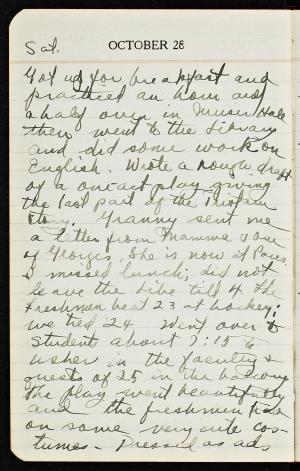 Sat. OCTOBER 28
Got up for breakfast and
practiced an hour and
a half over in Music Hall
then went to the Library
and did some work on
English. Wrote a rough draft
of a one act play giving
the last part of the
story. Granny sent me
a letter from Mamma & one
of Georges, She is now at Paris.
I missed lunch; did not
leave the Libe till 4. The
Freshmen beat 23 at hockey;
we tied 24. Went over to
Students about 7:15 to
usher in the faculty &
guests of 25 in the balcony
the play went beautifully
and the freshmen had
on some very cute cos-
tumes - Dressed as ads